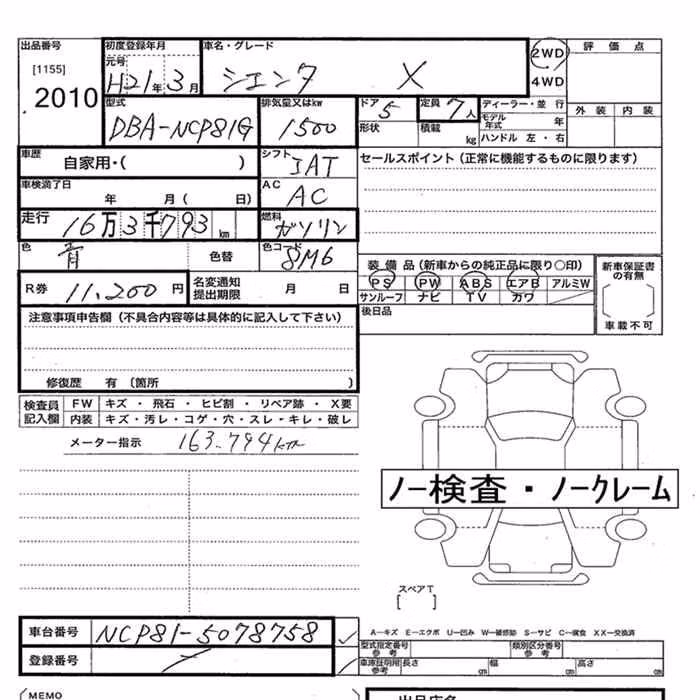 出品番号
[1155]
2010
初度登録年月
元号
H21年3月
車名・グレード
シエンタ X
2WD
4WD
評価点
外装 内装
型式
DBA-NCP81G
排気量又はkw
1500
ドア 5
形状
定員 7人
積載 kg
ディーラー・並行
モデル年式 年
ハンドル 左・右
車歴
自家用・( )
シフト
IAT
セールスポイント(正常に機能するものに限ります)
車検満了日
年 月( 日)
AC
AC
走行 16万3千793km
燃料
ガソリン
色
青
色替
色コード
8M6
装備品(新車からの純正品に限り○印)
PS PW ABS エアB アルミW
サンルーフ ナビ TV カワ
新車保証書の有無
車載不可
R券 11,200円
名変通知提出期限 月 日
後日品
注意事項申告欄(不具合内容等は具体的に記入して下さい)
修復歴 有〔箇所 )
検査員記入欄
FW キズ・飛石・ヒビ割・リペア跡・X要
内装 キズ・汚レ・コゲ・穴・スレ・キレ・破レ
メーター指示 163.794km
ノー検査・ノークレーム
スペアT
[ ]
車台番号 NCP81-5078758
登録番号
A-キズ E-エクボ U-凹み W-補修跡 S-サビ C-腐食 XX-交換済
型式指定番号 参考
類別区分番号 参考
車庫証明用 参考 長さ cm 幅 cm 高さ cm
MEMO
出品店名